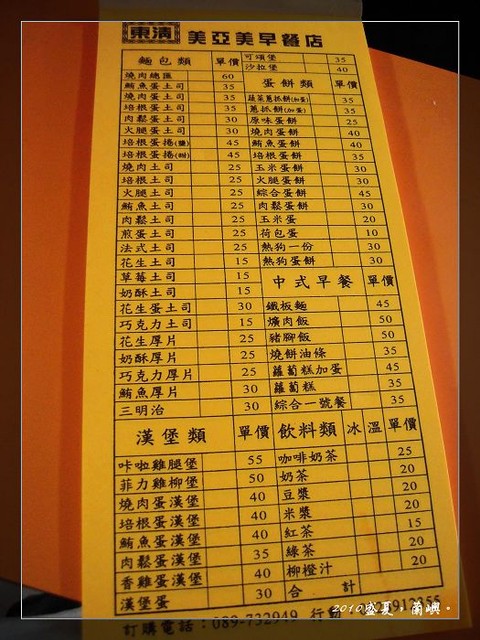 東清 美亞美早餐店
麵包類 單價
燒肉總匯 60
鮪魚蛋土司 35
燒肉蛋土司 35
培根蛋土司 35
肉鬆蛋土司 30
火腿蛋土司 30
培根蛋捲(鹽) 45
培根蛋捲(甜) 45
燒肉土司 25
培根土司 25
火腿土司 25
鮪魚土司 25
肉鬆土司 25
煎蛋土司 25
法式土司 25
花生土司 15
草莓土司 15
奶酥土司 15
花生蛋土司 30
巧克力土司 15
花生厚片 25
奶酥厚片 25
巧克力厚片 25
鮪魚厚片 30
三明治 30
可頌堡 35
沙拉堡 40
蛋餅類 單價
蔬菜蔥抓餅(加蛋) 35
蔥抓餅(加蛋) 35
原味蛋餅 25
燒肉蛋餅 40
鮪魚蛋餅 40
培根蛋餅 35
玉米蛋餅 30
火腿蛋餅 30
綜合蛋餅 45
肉鬆蛋餅 30
玉米蛋 20
荷包蛋 10
熱狗一份 30
熱狗蛋餅 30
中式早餐 單價
鐵板麵 45
爌肉飯 50
豬腳飯 50
燒餅油條 35
蘿蔔糕加蛋 45
蘿蔔糕 35
綜合一號餐 35
漢堡類 單價
咔啦雞腿堡 55
菲力雞柳堡 50
燒肉蛋漢堡 40
培根蛋漢堡 40
鮪魚蛋漢堡 40
肉鬆蛋漢堡 35
香雞蛋漢堡 40
漢堡蛋 30
飲料類 冰 溫 單價
咖啡奶茶 25
奶茶 20
豆漿 20
米漿 20
紅茶 15
綠茶 20
柳橙汁 20
合 計
訂購電話：089-732949 行動
2010盛夏，蘭嶼。